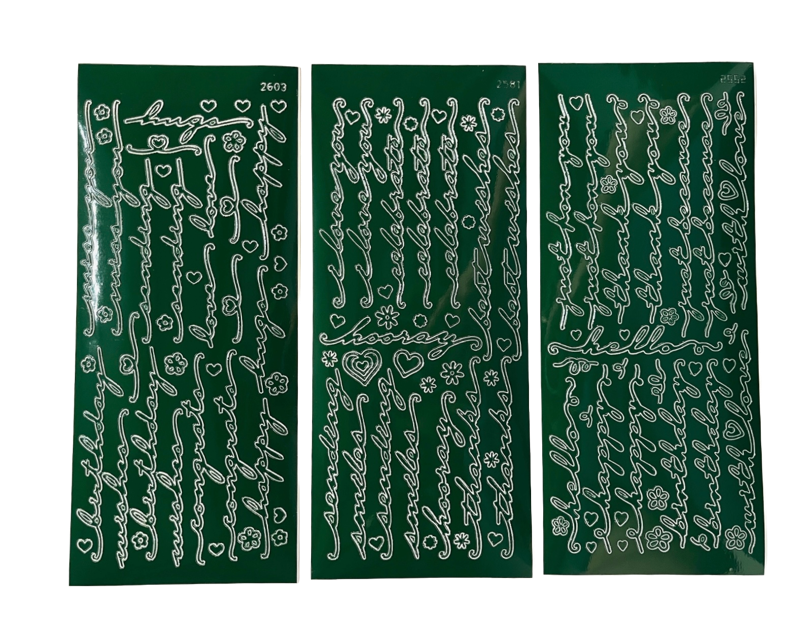 2603
hugs
miss you
miss you
sending
sending
love
love
happy
hugs
birthday
wishes
birthday
wishes
congrats
congrats
happy
2581
i love you
i love you
celebrate
celebrate
celebrate
best wishes
best wishes
hooray
sending
smiles
sending
smiles
hooray
thanks
thanks
just for you
just for you
thank you
thank you
just because
just because
with love
hello
hello
happy
happy
birthday
birthday
with love